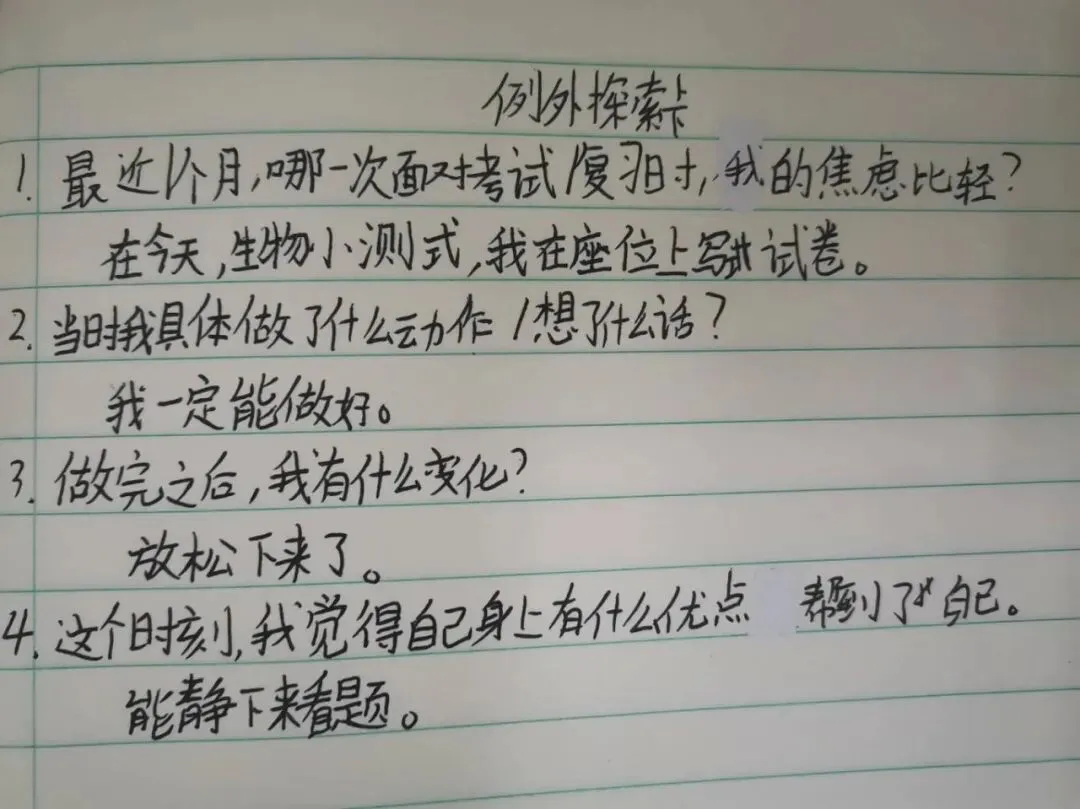 例外探索卡
1. 最近1个月,哪一次面对考试/复习时,我的焦虑比轻?
在今天,生物小测式,我在座位上写试卷。
2. 当时我具体做了什么动作/想了什么话?
我一定能做好。
3. 做完之后,我有什么变化?
放松下来了。
4. 这个时刻,我觉得自己身上有什么优点 帮到了自己。
能静下来看题。